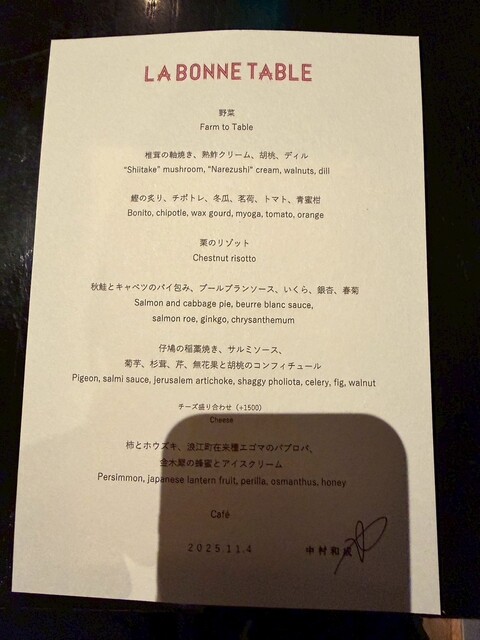 LA BONNE TABLE
野菜
Farm to Table
椎茸の軸焼き、熟鮓クリーム、胡桃、ディル
"Shiitake" mushroom, "Narezushi" cream, walnuts, dill
鰹の炙り、チポトレ、冬瓜、茗荷、トマト、青蜜柑
Bonito, chipotle, wax gourd, myoga, tomato, orange
栗のリゾット
Chestnut risotto
秋鮭とキャベツのパイ包み、ブールブランソース、いくら、銀杏、春菊
Salmon and cabbage pie, beurre blanc sauce,
salmon roe, ginkgo, chrysanthemum
仔鳩の稲藁焼き、サルミソース、
菊芋、杉茸、芹、無花果と胡桃のコンフィチュール
Pigeon, salmi sauce, jerusalem artichoke, shaggy pholiota, celery, fig, walnut
チーズ盛り合わせ（+1500）
Cheese
柿とホウズキ、浪江町在来種エゴマのパブロバ、
金木犀の蜂蜜とアイスクリーム
Persimmon, japanese lantern fruit, perilla, osmanthus, honey
Café
2025.11.4
中村和成